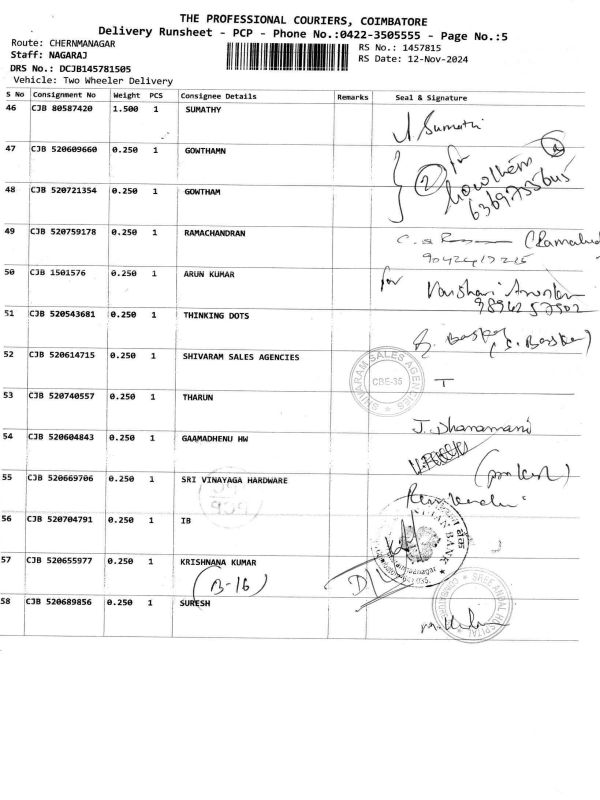 THE PROFESSIONAL COURIERS, COIMBATORE
Delivery Runsheet - PCP - Phone No.:0422-3505555 - Page No.:5
Route: CHERNMANAGAR RS No.: 1457815
Staff: NAGARAJ RS Date: 12-Nov-2024
DRS No.: DCJB145781505
Vehicle: Two Wheeler Delivery
S No Consignment No Weight PCS Consignee Details Remarks Seal & Signature
46 CJB 80587420 1.500 1 SUMATHY
Sumathi
47 CJB 520609660 0.250 1 GOWTHAMN
for
2
48 CJB 520721354 0.250 1 GOWTHAM
49 CJB 520759178 0.250 1 RAMACHANDRAN
50 CJB 1501576 0.250 1 ARUN KUMAR
for
51 CJB 520543681 0.250 1 THINKING DOTS
52 CJB 520614715 0.250 1 SHIVARAM SALES AGENCIES
SHIVARAM SALES AGENCIES
CBE-35
53 CJB 520740557 0.250 1 THARUN
J. Dhanamani
54 CJB 520604843 0.250 1 GAAMADHENU HW
55 CJB 520669706 0.250 1 SRI VINAYAGA HARDWARE
56 CJB 520704791 0.250 1 IB
BANK
57 CJB 520655977 0.250 1 KRISHNANA KUMAR
(B-16)
58 CJB 520689856 0.250 1 SURESH
HOSPITAL